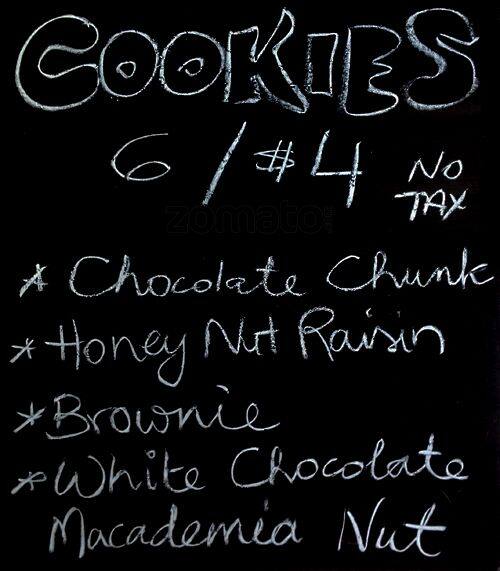 COOKIES
6 / $4 NO TAX
zomato
* Chocolate Chunk
* Honey Nut Raisin
* Brownie
* White Chocolate
Macademia Nut